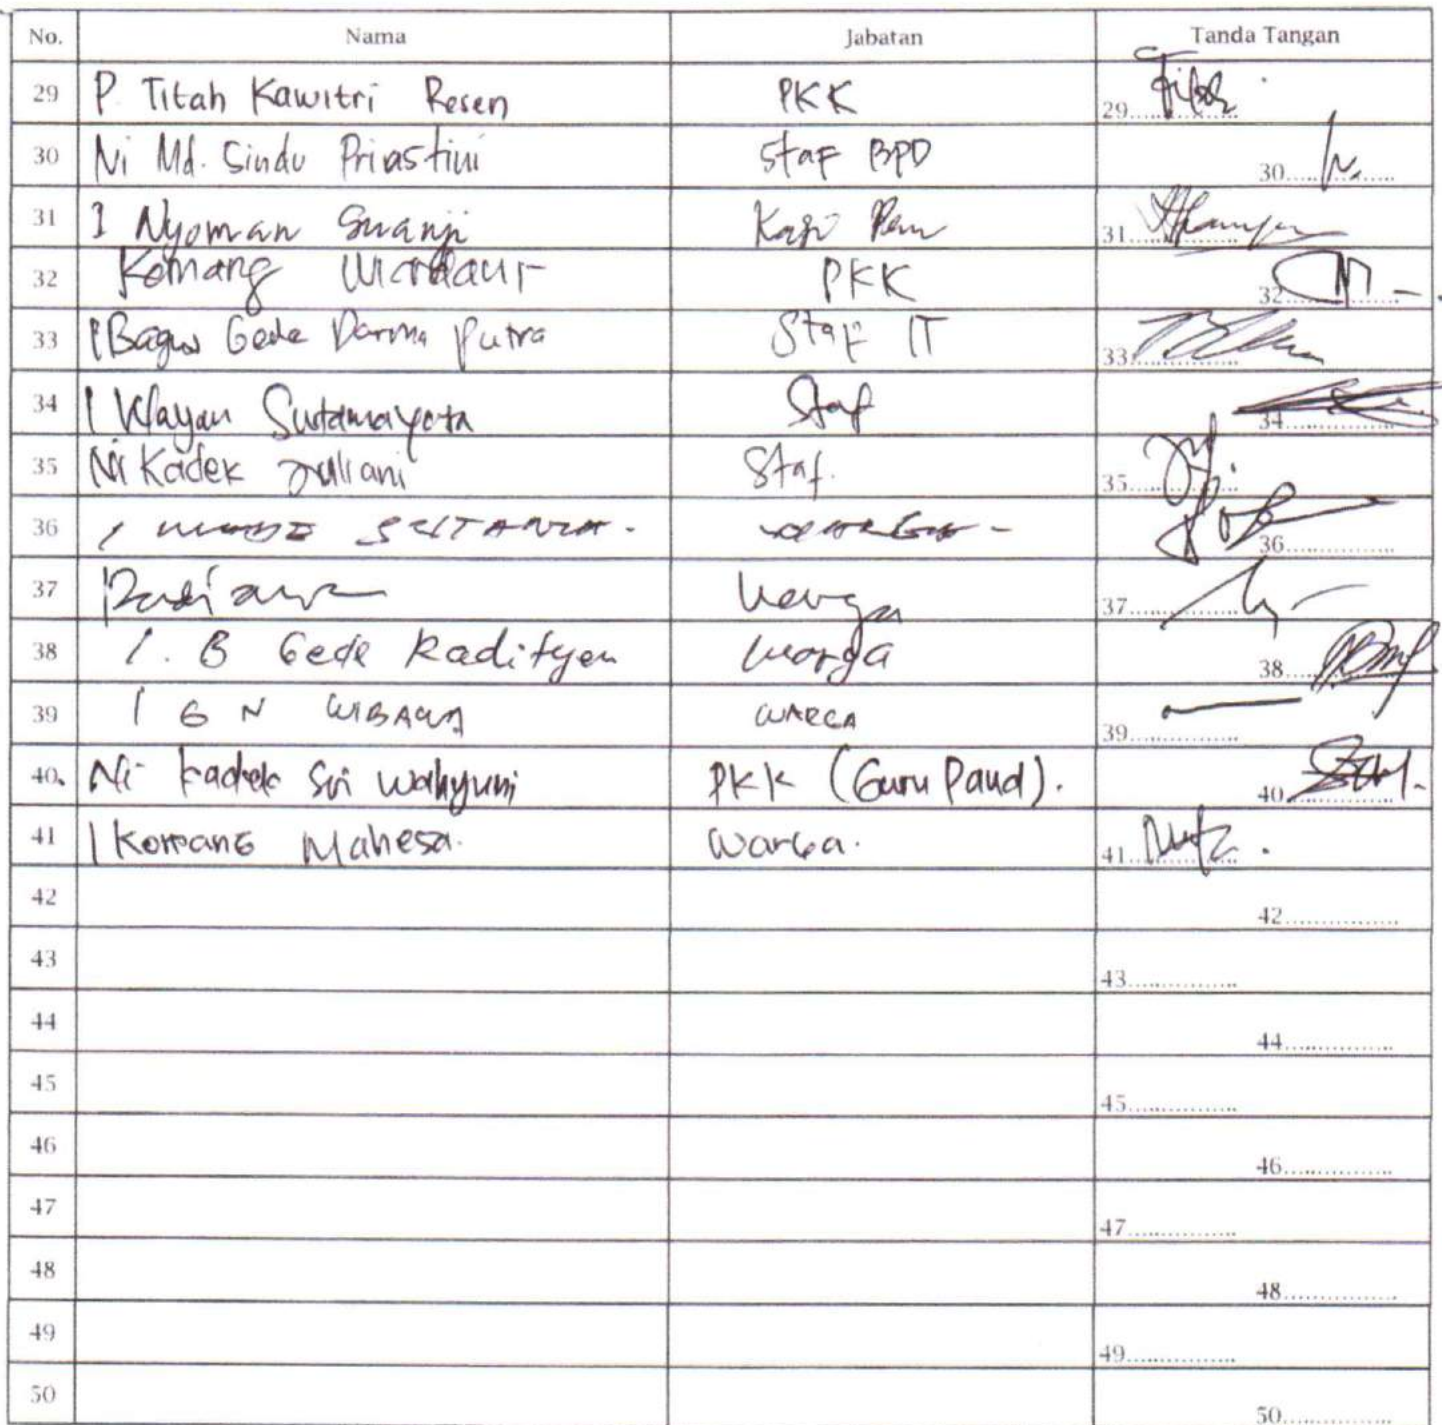 No. Nama Jabatan Tanda Tangan
29 P. Titah Kawitri Resen PKK 29
30 Ni Md. Sindu Priastini Staf BPD 30
31 I Nyoman Suanji Kasi Pem 31
32 Komang PKK 32
33 I Bagus Gede Darma Putra Staf IT 33
34 I Wayan Sutamayasa Staf 34
35 Ni Kadek Juliani Staf. 35
36 I MADE SUTANRA. 36
37 Warga 37
38 I. B Gede Radityan Warga 38
39 I G N WIBAWA WARGA 39
40. Ni Kadek Sri Wahyuni PKK (Guru Paud). 40
41 I KOMANG Mahesa. Warga. 41
42 42
43 43
44 44
45 45
46 46
47 47
48 48
49 49
50 50